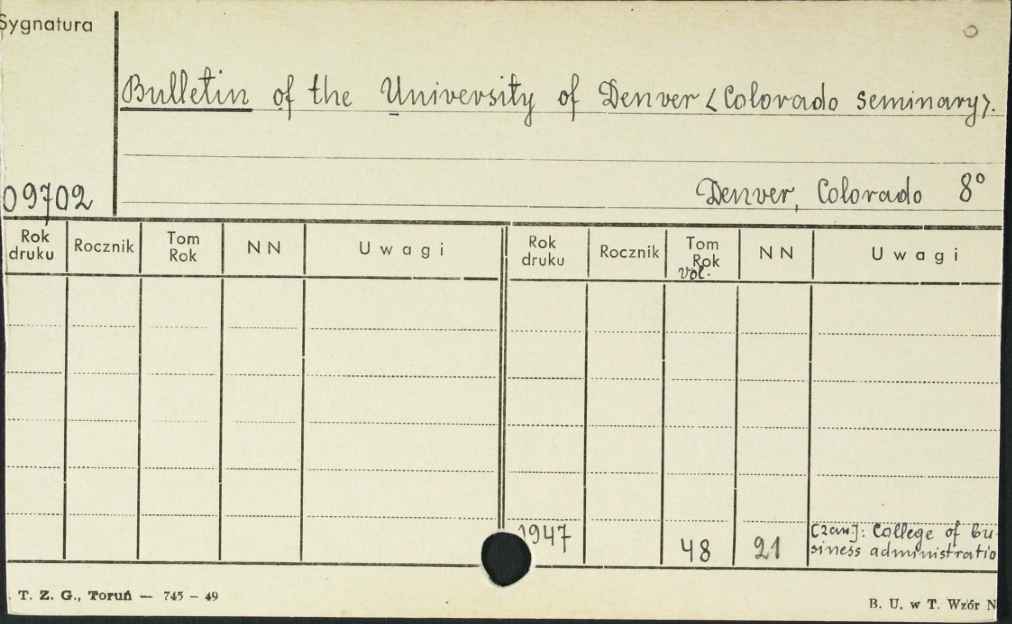 Sygnatura
Bulletin of the University of Denver <Colorado seminary>.
09702
Denver, Colorado 8°
Rok druku Rocznik Tom Rok N N Uwagi Rok druku Rocznik Tom Rok vol. N N Uwagi
1947 48 21 [Zaw]: College of bu-
siness administratio
. T. Z. G., Toruń — 745 – 49
B. U. w T. Wzór N